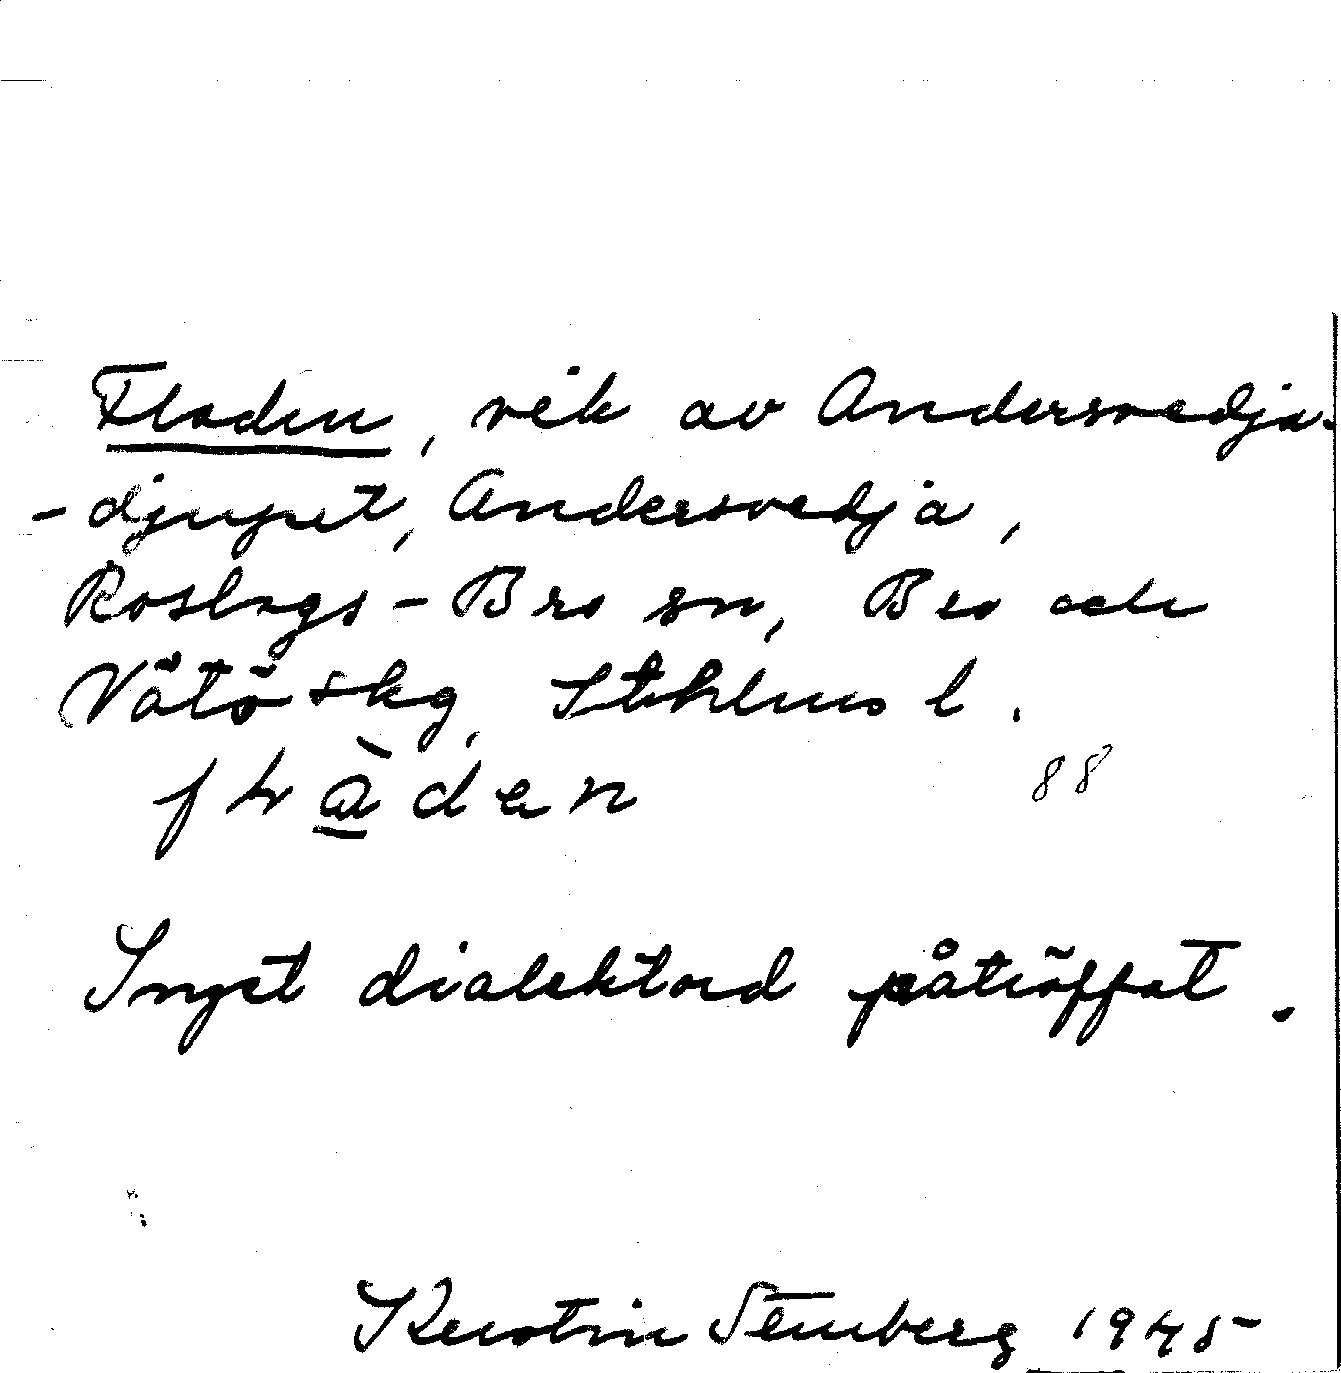 Fladen, vik av Andersvedja-
-djupet, Andersvedja,
Roslags-Bro sn, Bro och
Vätö skg, Sthlms l.
88
Inget dialektord påträffat.
Kerstin Stenberg 1945